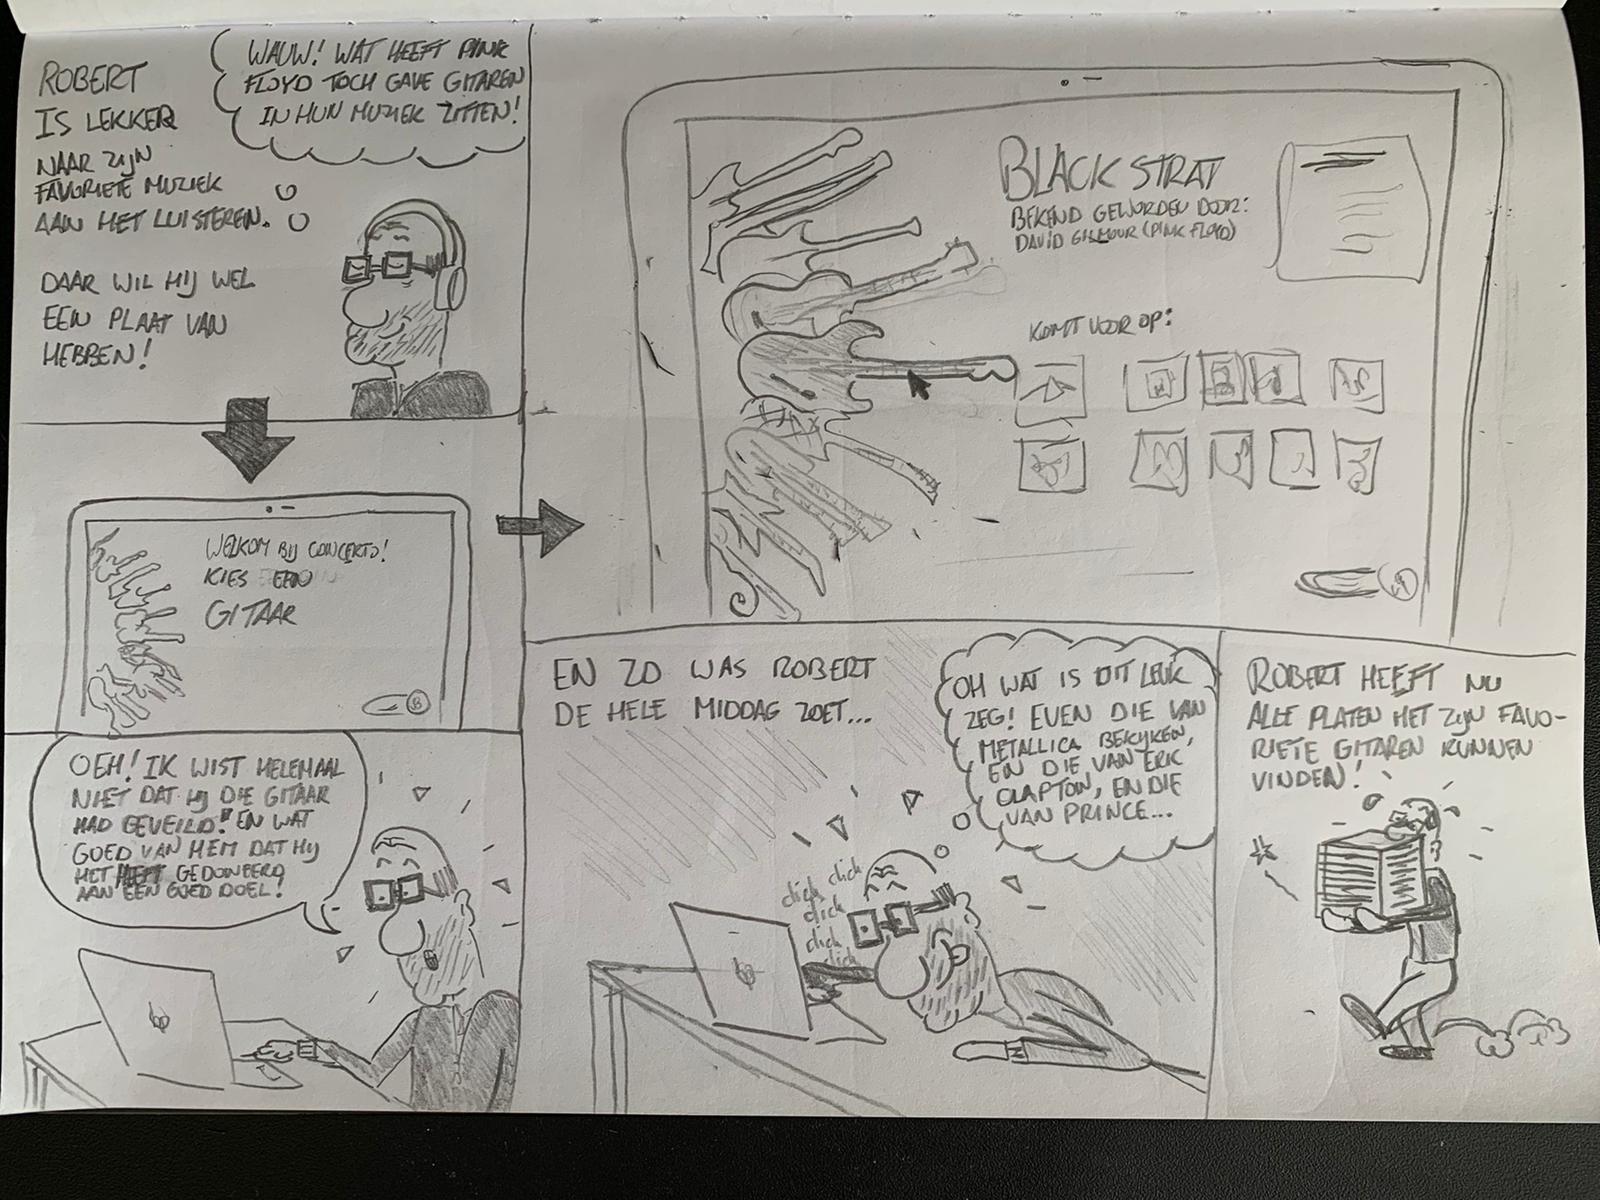 ROBERT
IS LEKKER
NAAR ZIJN
FAVORIETE MUZIEK
AAN HET LUISTEREN.
DAAR WIL HIJ WEL
EEN PLAAT VAN
HEBBEN!
WAUW! WAT HEEFT PINK
FLOYD TOCH GAVE GITAREN
IN HUN MUZIEK ZITTEN!
WELKOM BIJ CONCERTO!
KIES EEN
GITAAR
BLACK STRAT
BEKEND GEWORDEN DOOR:
DAVID GILMOUR (PINK FLOYD)
KOMT VOOR OP:
OEH! IK WIST HELEMAAL
NIET DAT HIJ DIE GITAAR
HAD GEVEILD! EN WAT
GOED VAN HEM DAT HIJ
HET HEEFT GEDONEERD
AAN EEN GOED DOEL!
EN ZO WAS ROBERT
DE HELE MIDDAG ZOET...
OH WAT IS DIT LEUK
ZEG! EVEN DIE VAN
METALLICA BEKIJKEN,
EN DIE VAN ERIC
CLAPTON, EN DIE
VAN PRINCE...
click click
click
click
click
ROBERT HEEFT NU
ALLE PLATEN MET ZIJN FAVO-
RIETE GITAREN KUNNEN
VINDEN!